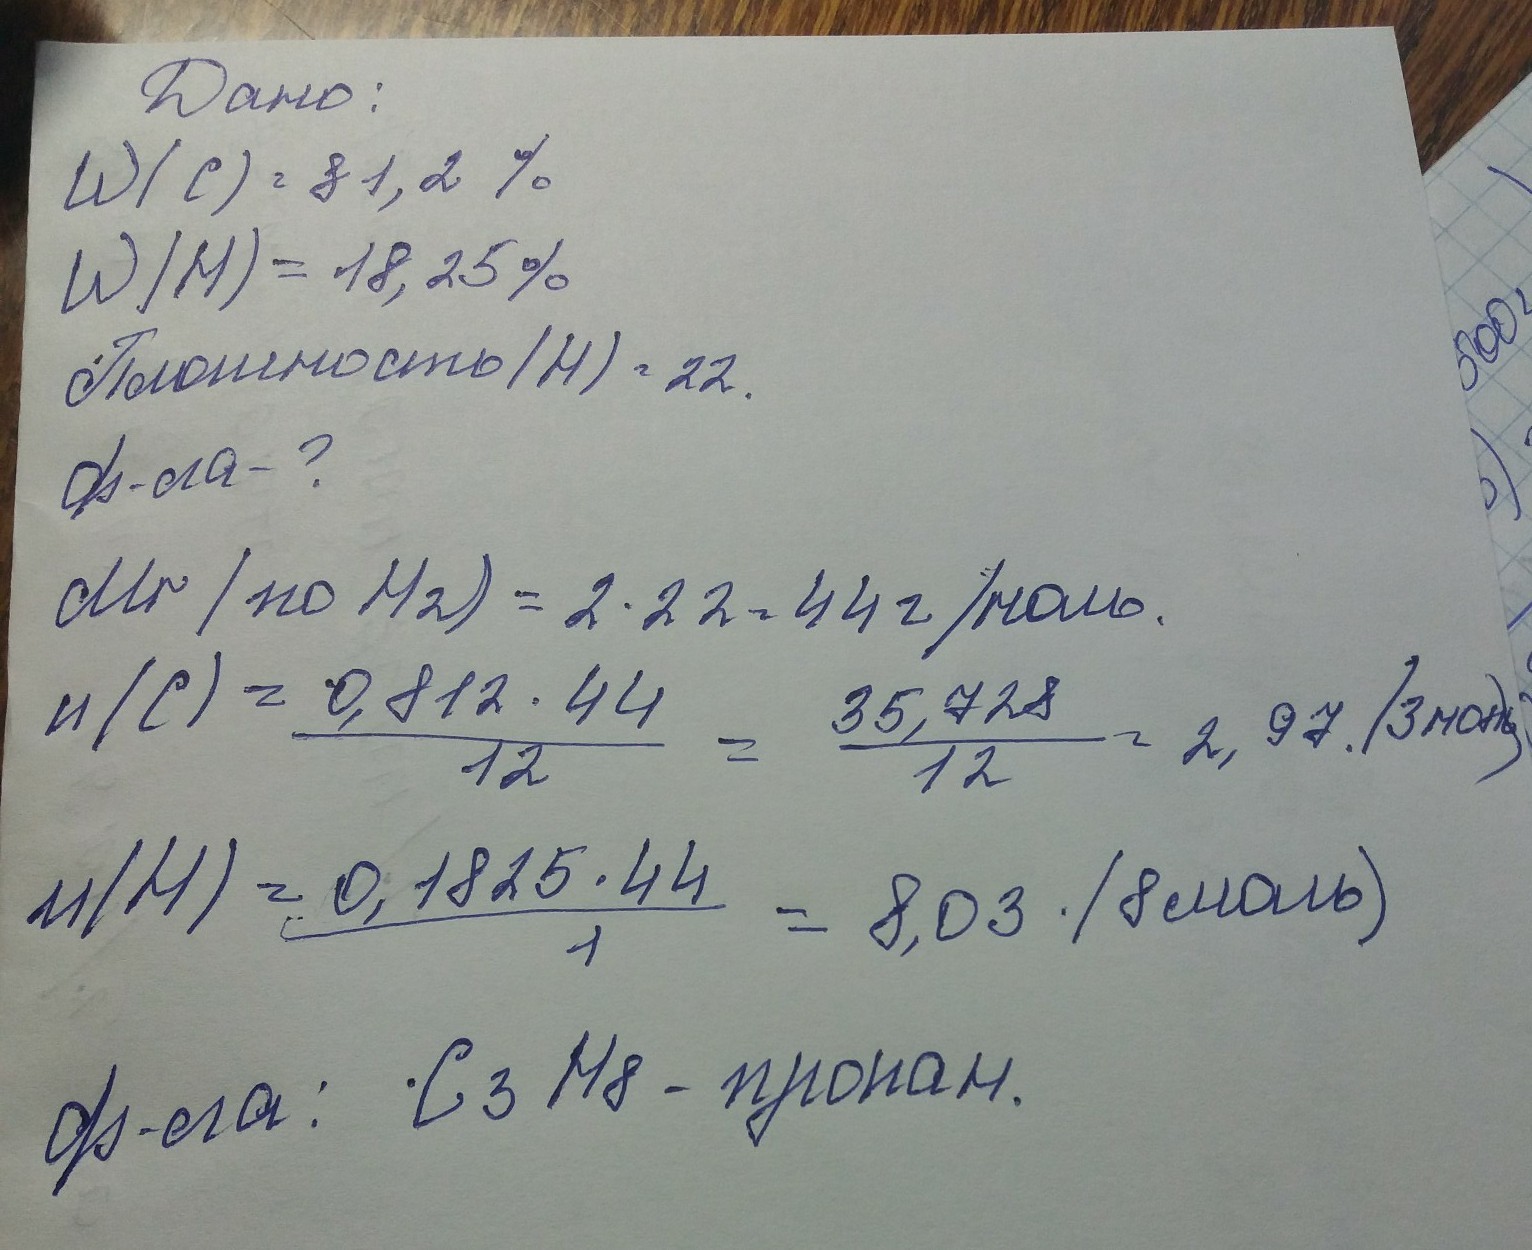 Дано:
W(C) = 81,2 %
W(H) = 18,25%
Плотность(H) = 22.
ф-ла - ?
Mr (по H2) = 2·22 = 44 г/моль.
n(C) = 0,812·44 / 12 = 35,728 / 12 = 2,97. (3 моль)
n(H) = 0,1825·44 / 1 = 8,03. (8 моль)
ф-ла: C3H8 - пропан.